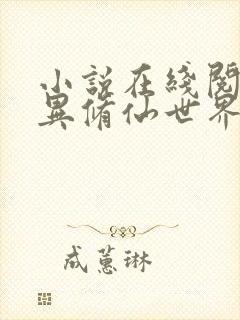 小說在綫閱
異脩仙世界
成蕙琳